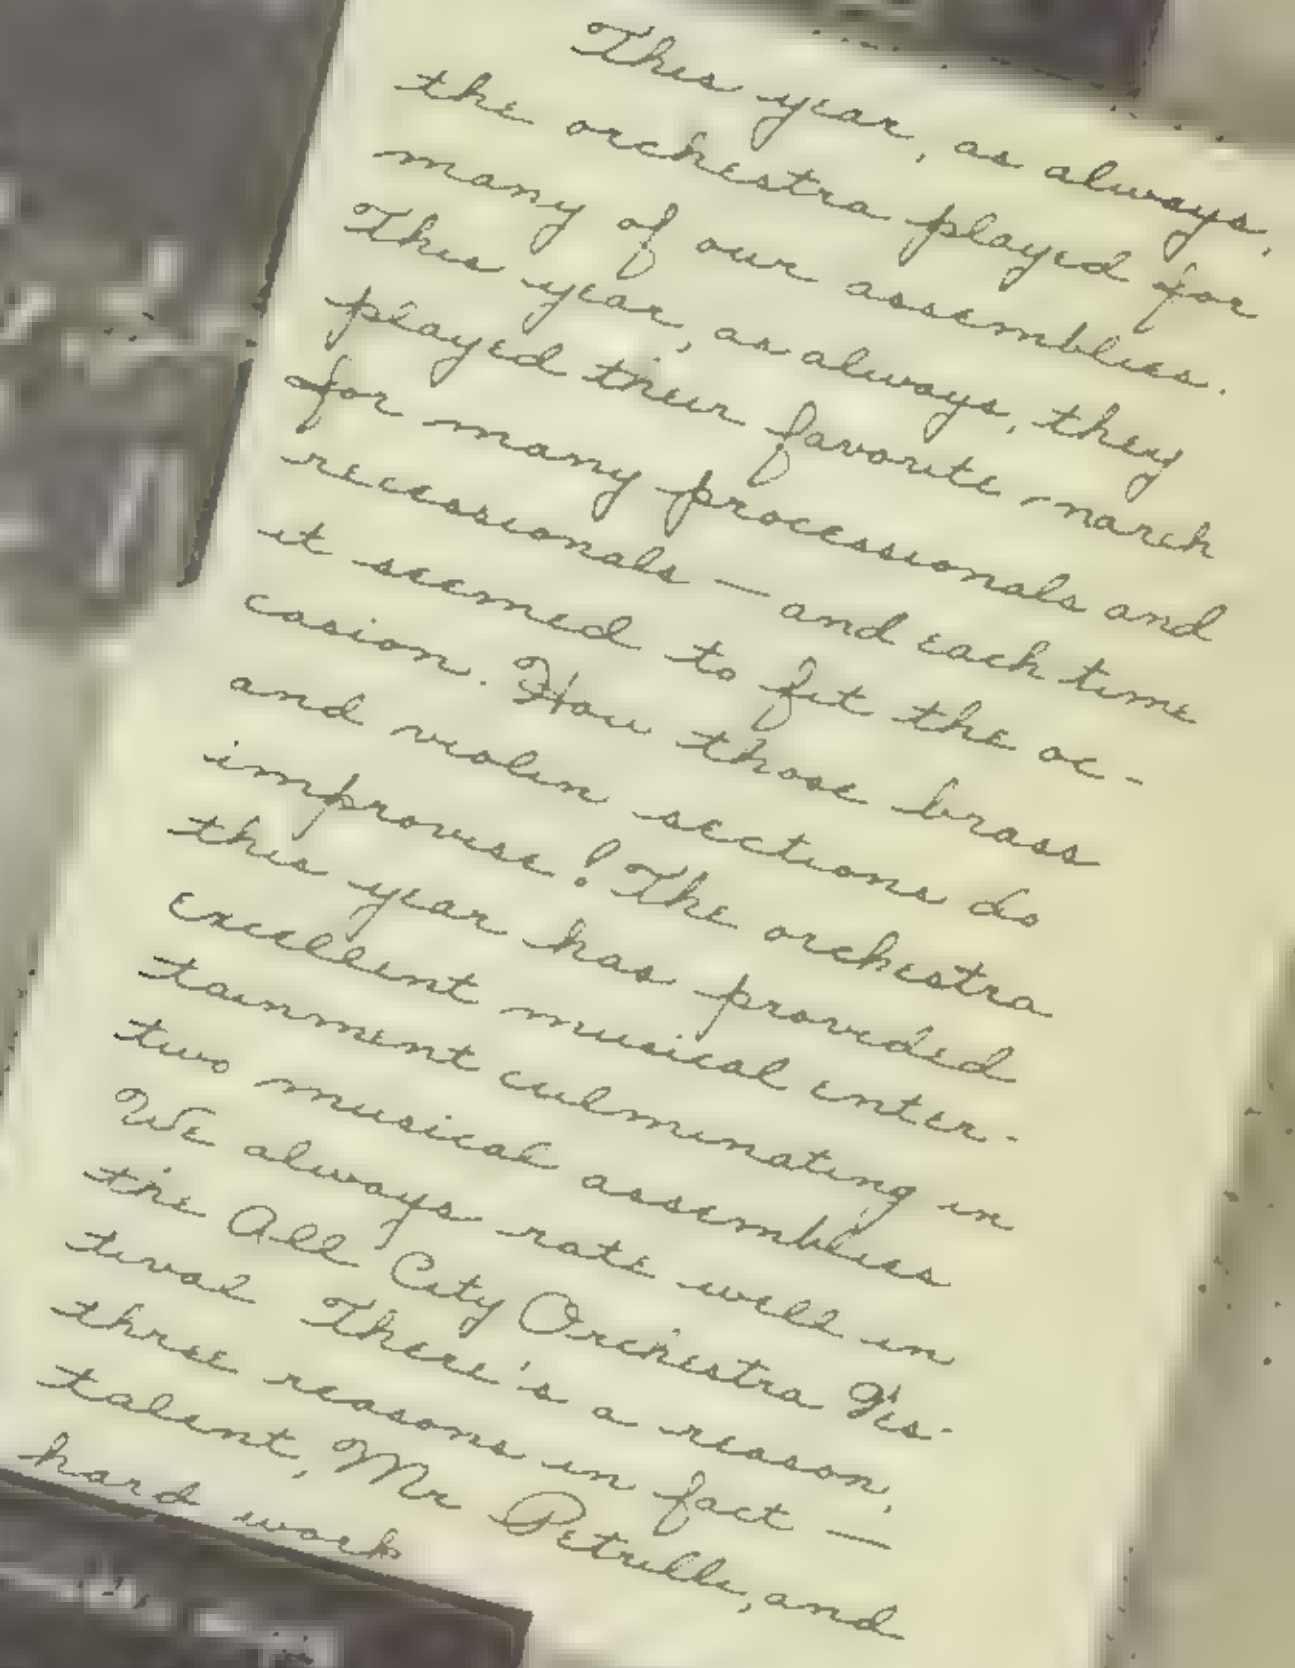 This year, as always,
the orchestra played for
many of our assemblies.
This year, as always, they
played their favorite march
for many processionals and
recessionals — and each time
it seemed to fit the oc-
casion. How those brass
and violin sections do
improvise! The orchestra
this year has provided
excellent musical enter-
tainment culminating in
two musical assemblies
We always rate well in
the All City Orchestra Fes-
tival There's a reason,
three reasons in fact —
talent, Mr Petrilli, and
hard work